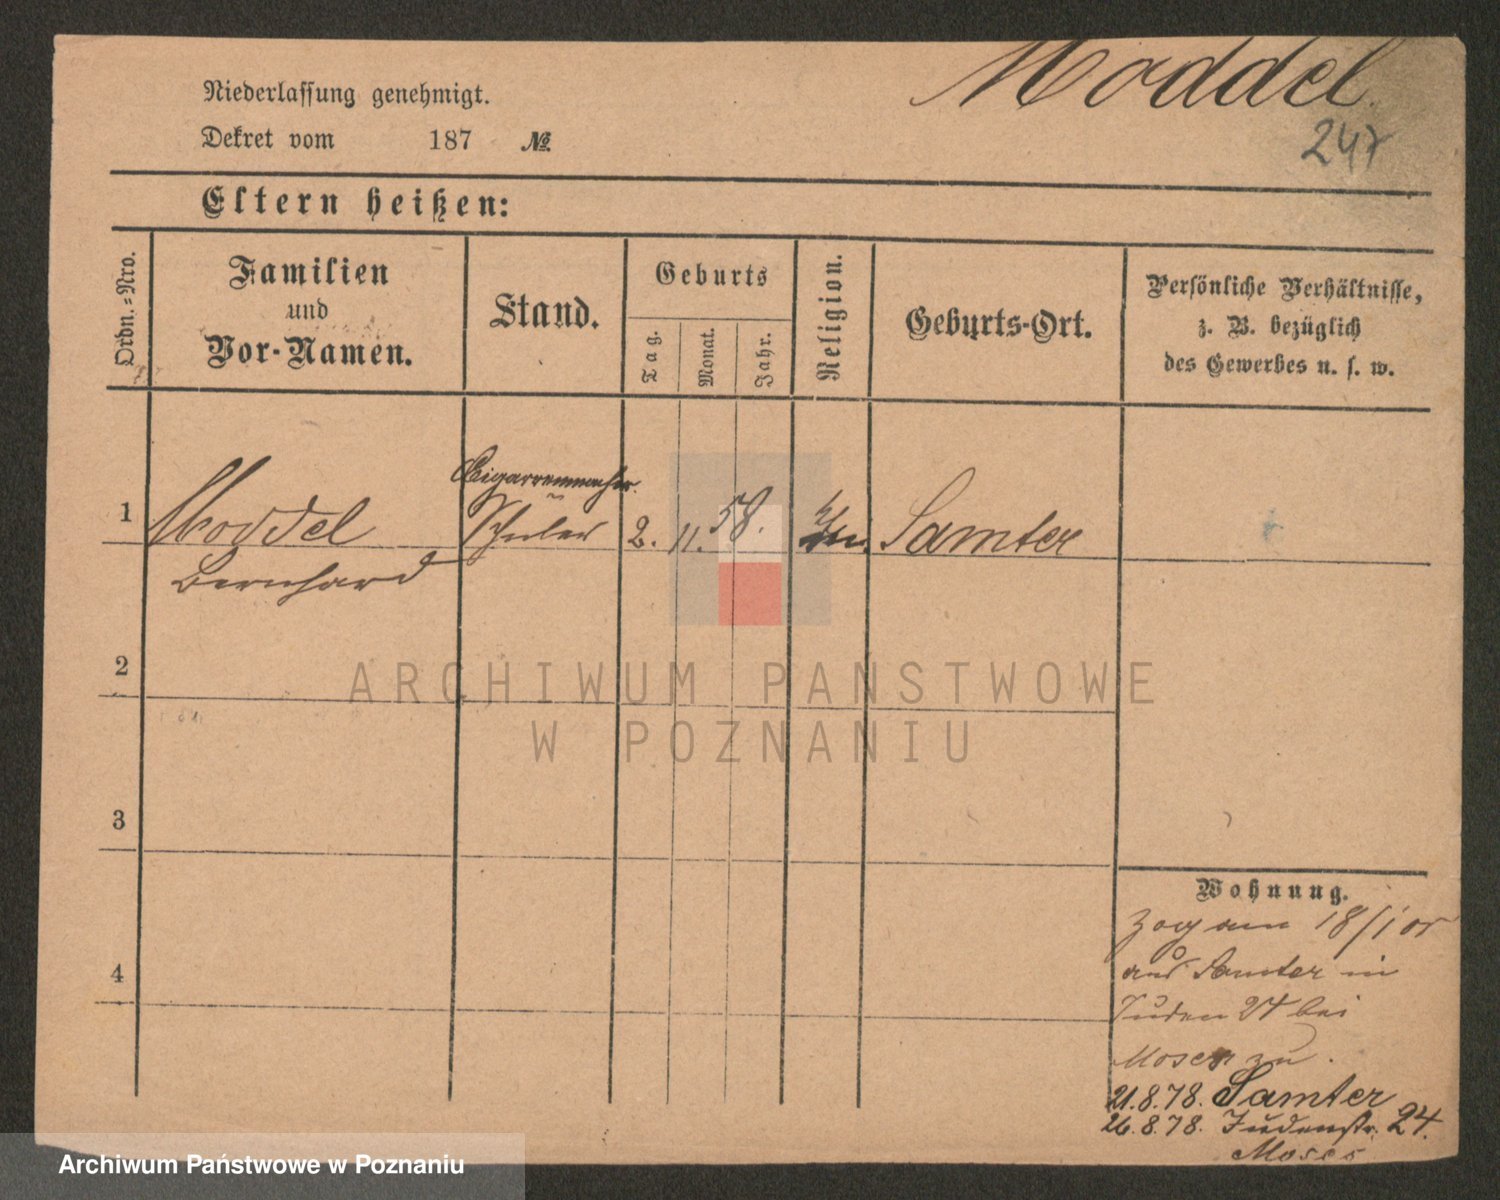 Moddel.
247
Niederlassung genehmigt.
Dekret vom 187 №.
Eltern heißen:
Ordn.=Nro.
Familien
und
Vor-Namen.
Stand.
Geburts
Tag.
Monat.
Jahr.
Religion.
Geburts-Ort.
Persönliche Verhältnisse,
z. B. bezüglich
des Gewerbes u. s. w.
Cigarrenmacher.
1 Moddel Schüler 2. 11. 58. Samter
Bernhard
2
3
4
Wohnung.
Zog am 18/1
aus Samter in
Juden 24 bei
Moses zu.
21.8.78. Samter
26.8.78. Judenstr. 24.
Moses
ARCHIWUM PAŃSTWOWE
W POZNANIU
Archiwum Państwowe w Poznaniu